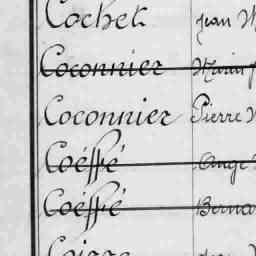 Cochet Jean
Coconnier Marin
Coconnier Pierre
Coéffé Ange
Coéffé